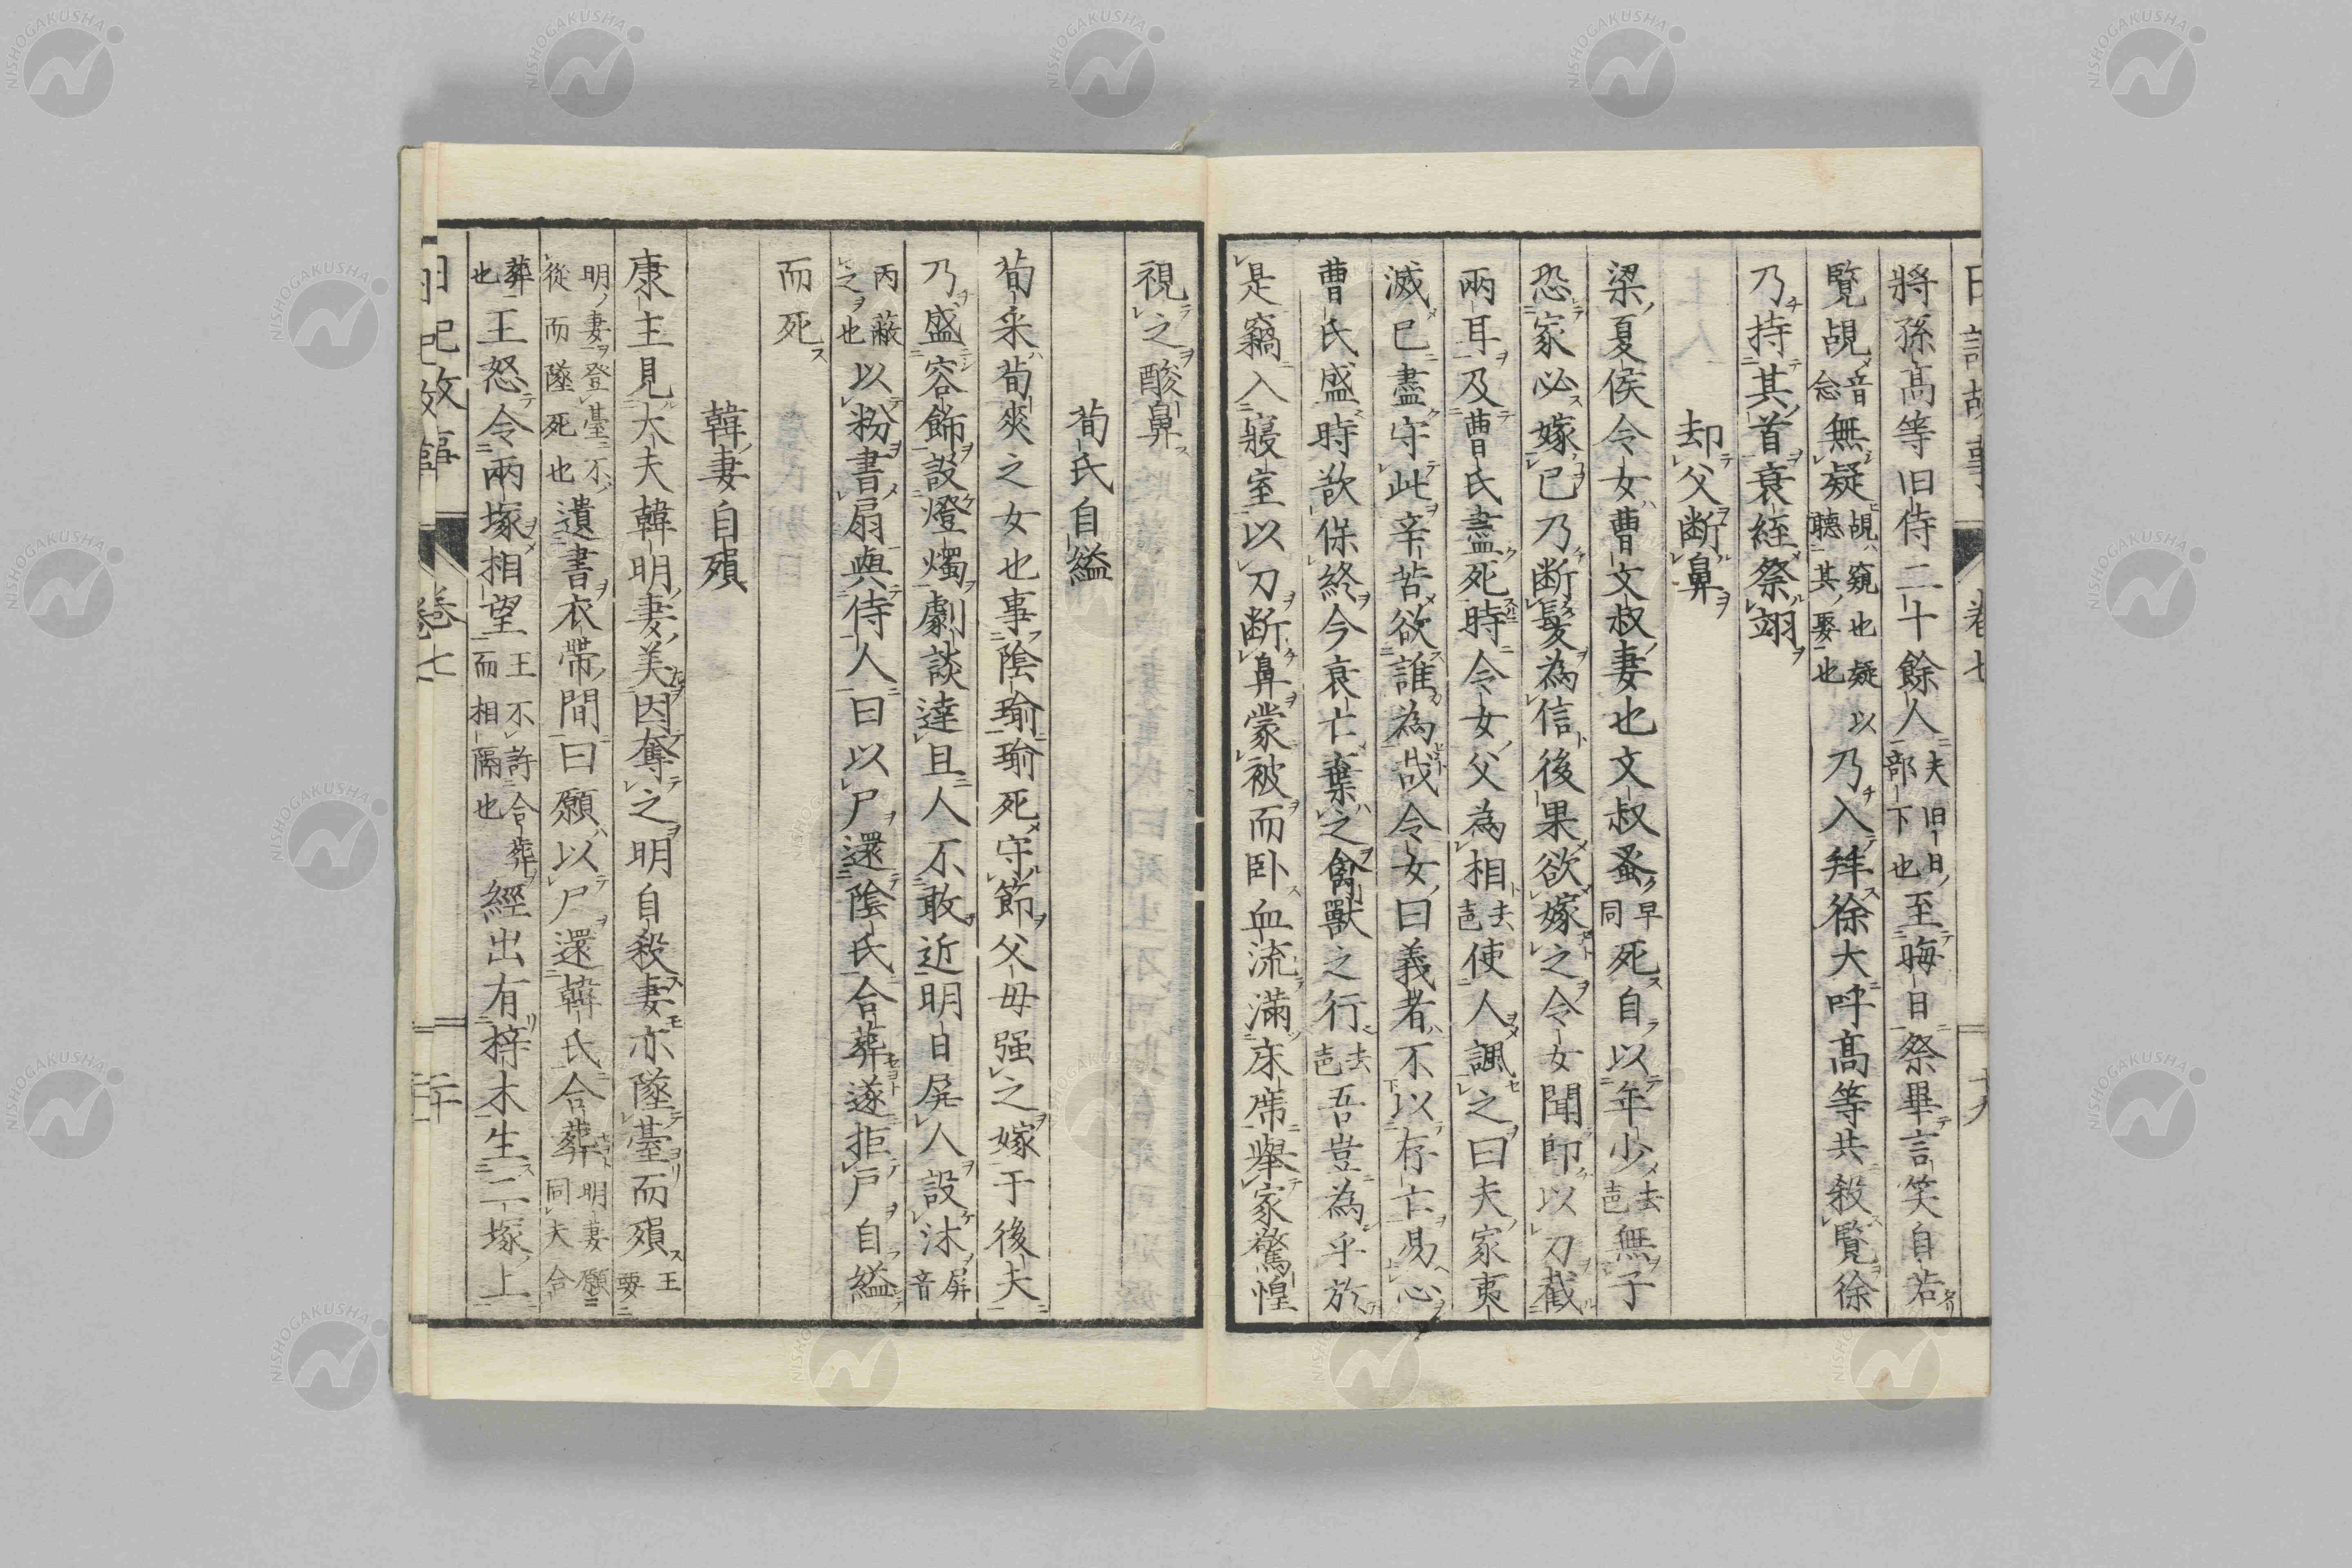 將孫高等旧侍二十餘人夫旧日部下也至晦日祭畢言笑自若
覽覘音念無疑覘窺也疑聽其娶也以乃入拜徐大呼高等共殺覽徐
乃持其首衰絰祭翊
却父断鼻
梁夏侯令女曹文叔妻也文叔蚤早同死自以年少去声無子
恐家必嫁已乃断髮為信後果欲嫁之令女聞即以刀截
兩耳及曹氏盡死時令女父為相去声使人諷之曰夫家夷
滅已盡守此辛苦欲誰為哉令女曰義者不以存亡易心
曹氏盛時欲保終今衰亡棄之禽獸之行去声吾豈為乎於
是竊入寢室以刀断鼻蒙被而卧血流滿床席舉家驚惶
視之酸鼻
荀氏自縊
荀采荀爽之女也事陰瑜瑜死守節父母强之嫁于後夫
乃盛容飾設燈燭劇談達旦人不敢近明日屏人設沐屏音
丙蔽之也以粉書扇與侍人曰以尸還陰氏合葬遂拒戸自縊
而死
韓妻自殞
康主見大夫韓明妻美因奪之明自殺妻亦墜臺而殞王要
明妻登臺不從而墜死也遺書衣帶間曰願以尸還韓氏合葬明妻願同夫合
葬也王怒令兩塚相望王不許合葬而相隔也經出有梓木生二塚上
日記故事
卷七